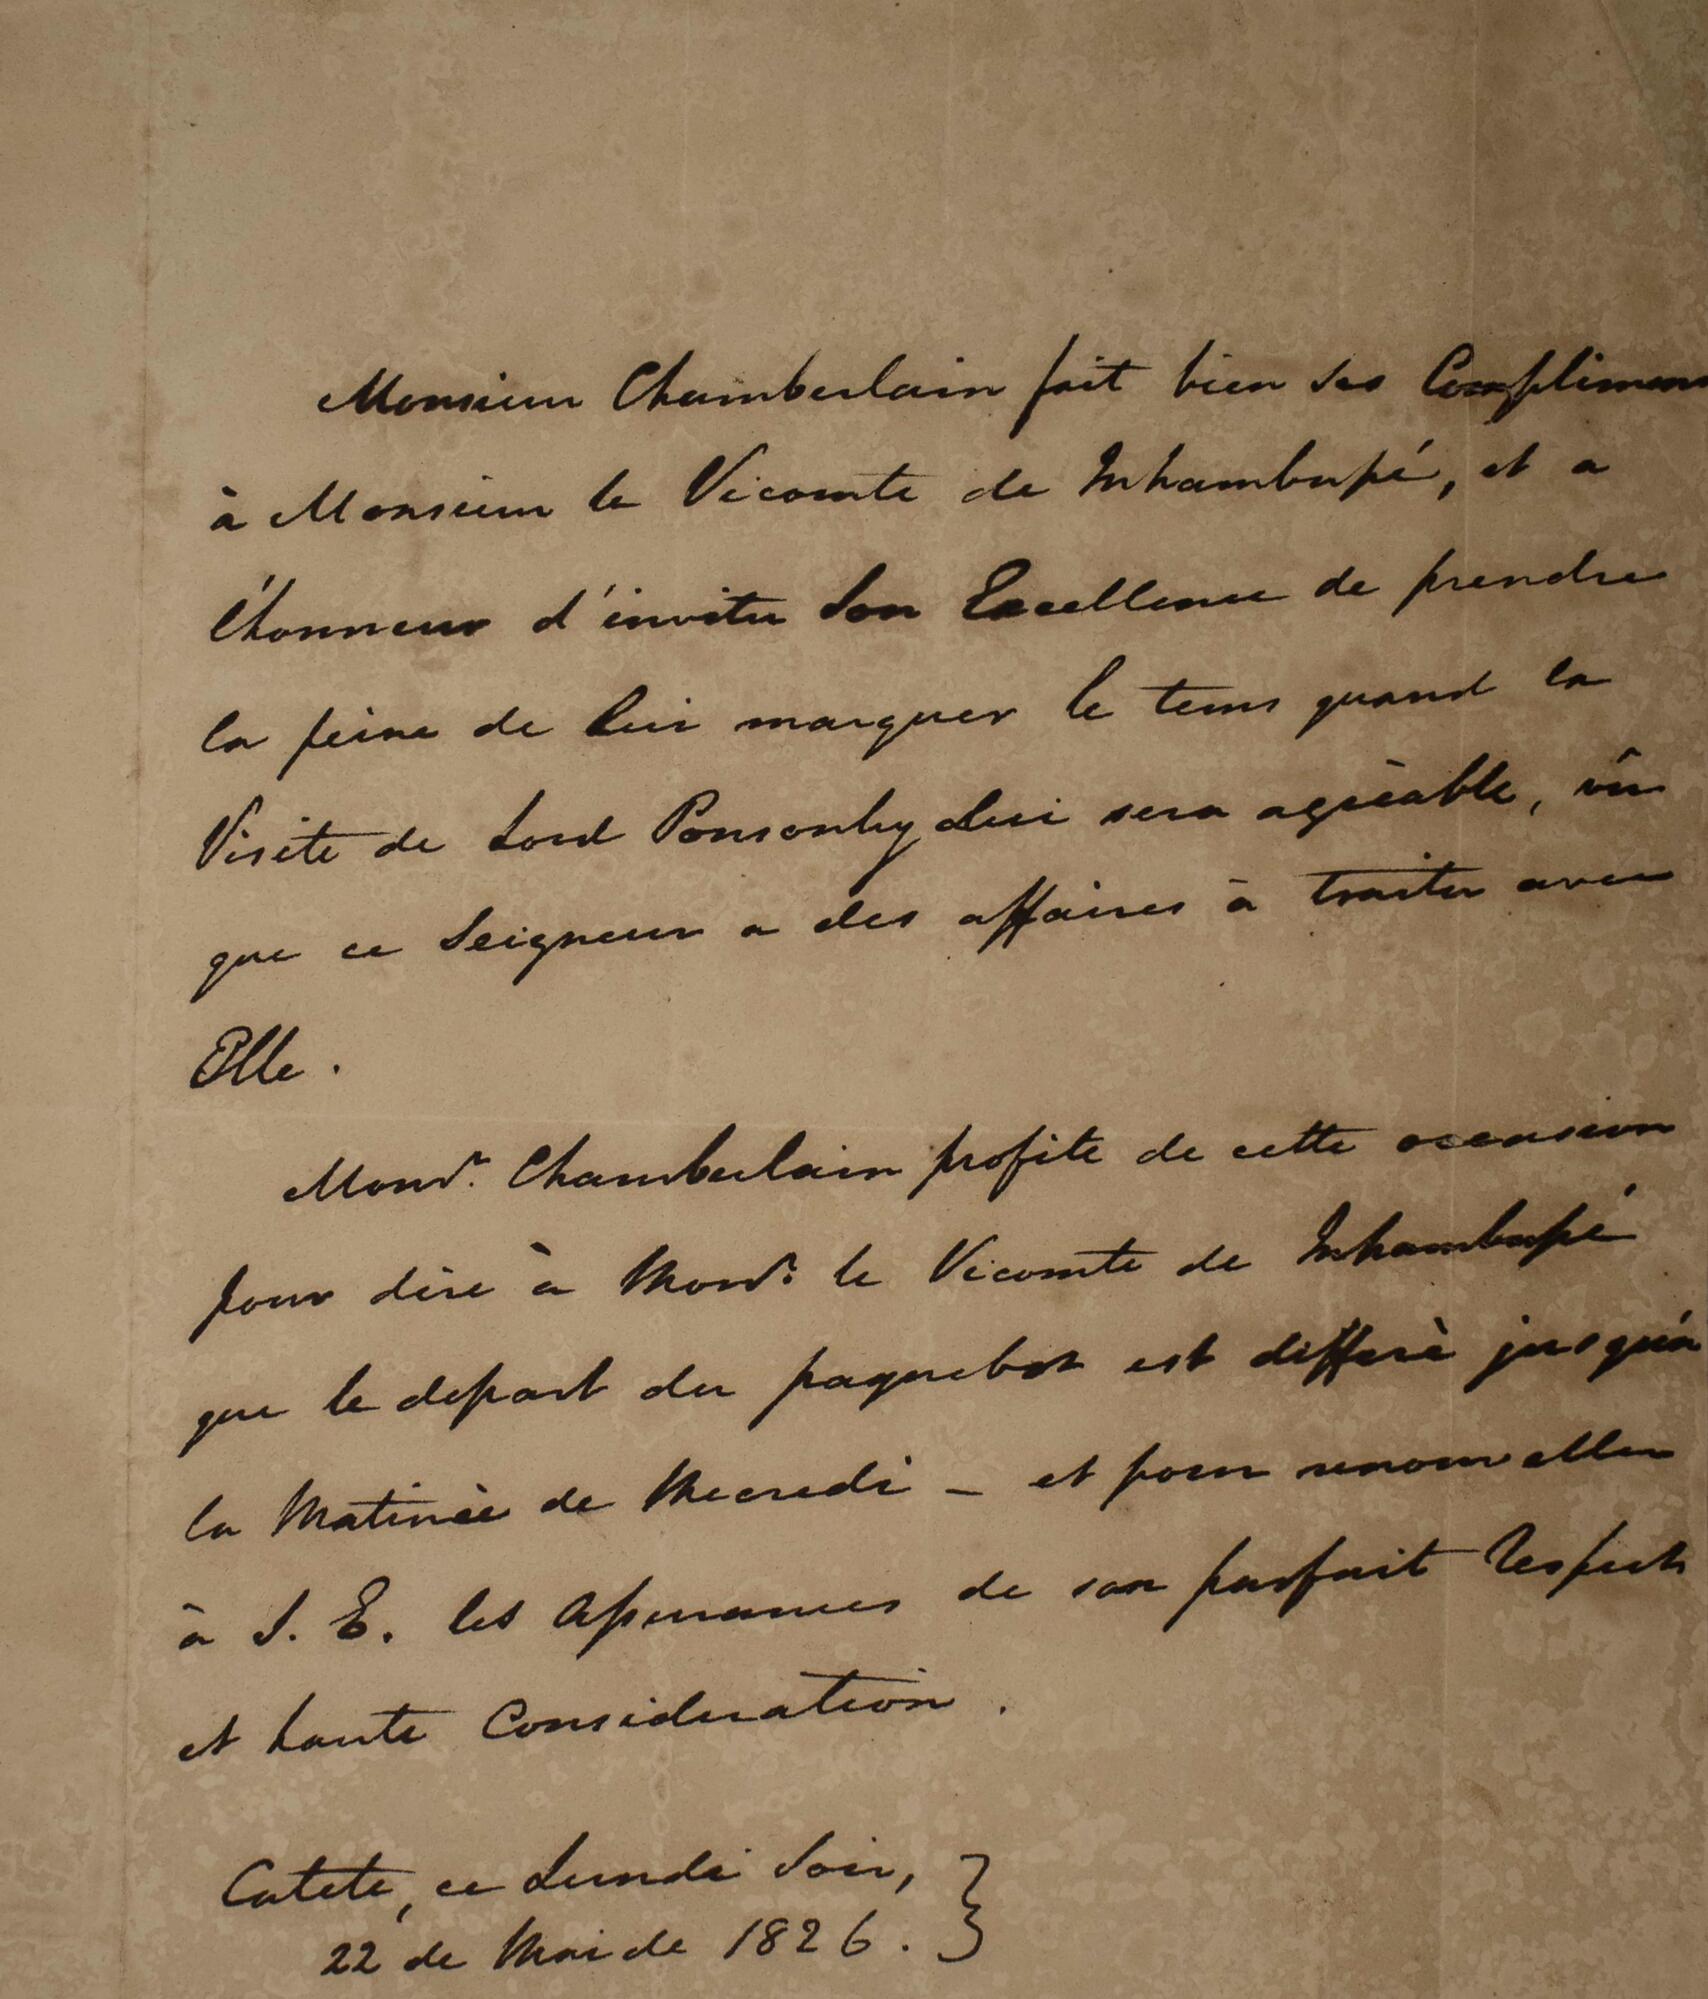 Monsieur Chamberlain fait bien ses Complimens
à Monsieur le Vicomte de Inhambupé, et a
l'honneur d'inviter Son Excellence de prendre
la peine de Lui marquer le tems quand la
Visite de Lord Ponsonby Lui sera agrèable, vû
que ce Seigneur a des affaires à traiter avec
Elle.
Monsr. Chamberlain profite de cette occasion
pour dire à Monsr. le Vicomte de Inhambupé
que le depart du paquebot est differè jusqu'a
la Matinèe de Mecredi - et pour renouveller
à S. E. les Assurances de son parfait Respect
et haute Consideration.
Catete, ce Lundi Soir,
22 de Mai de 1826.